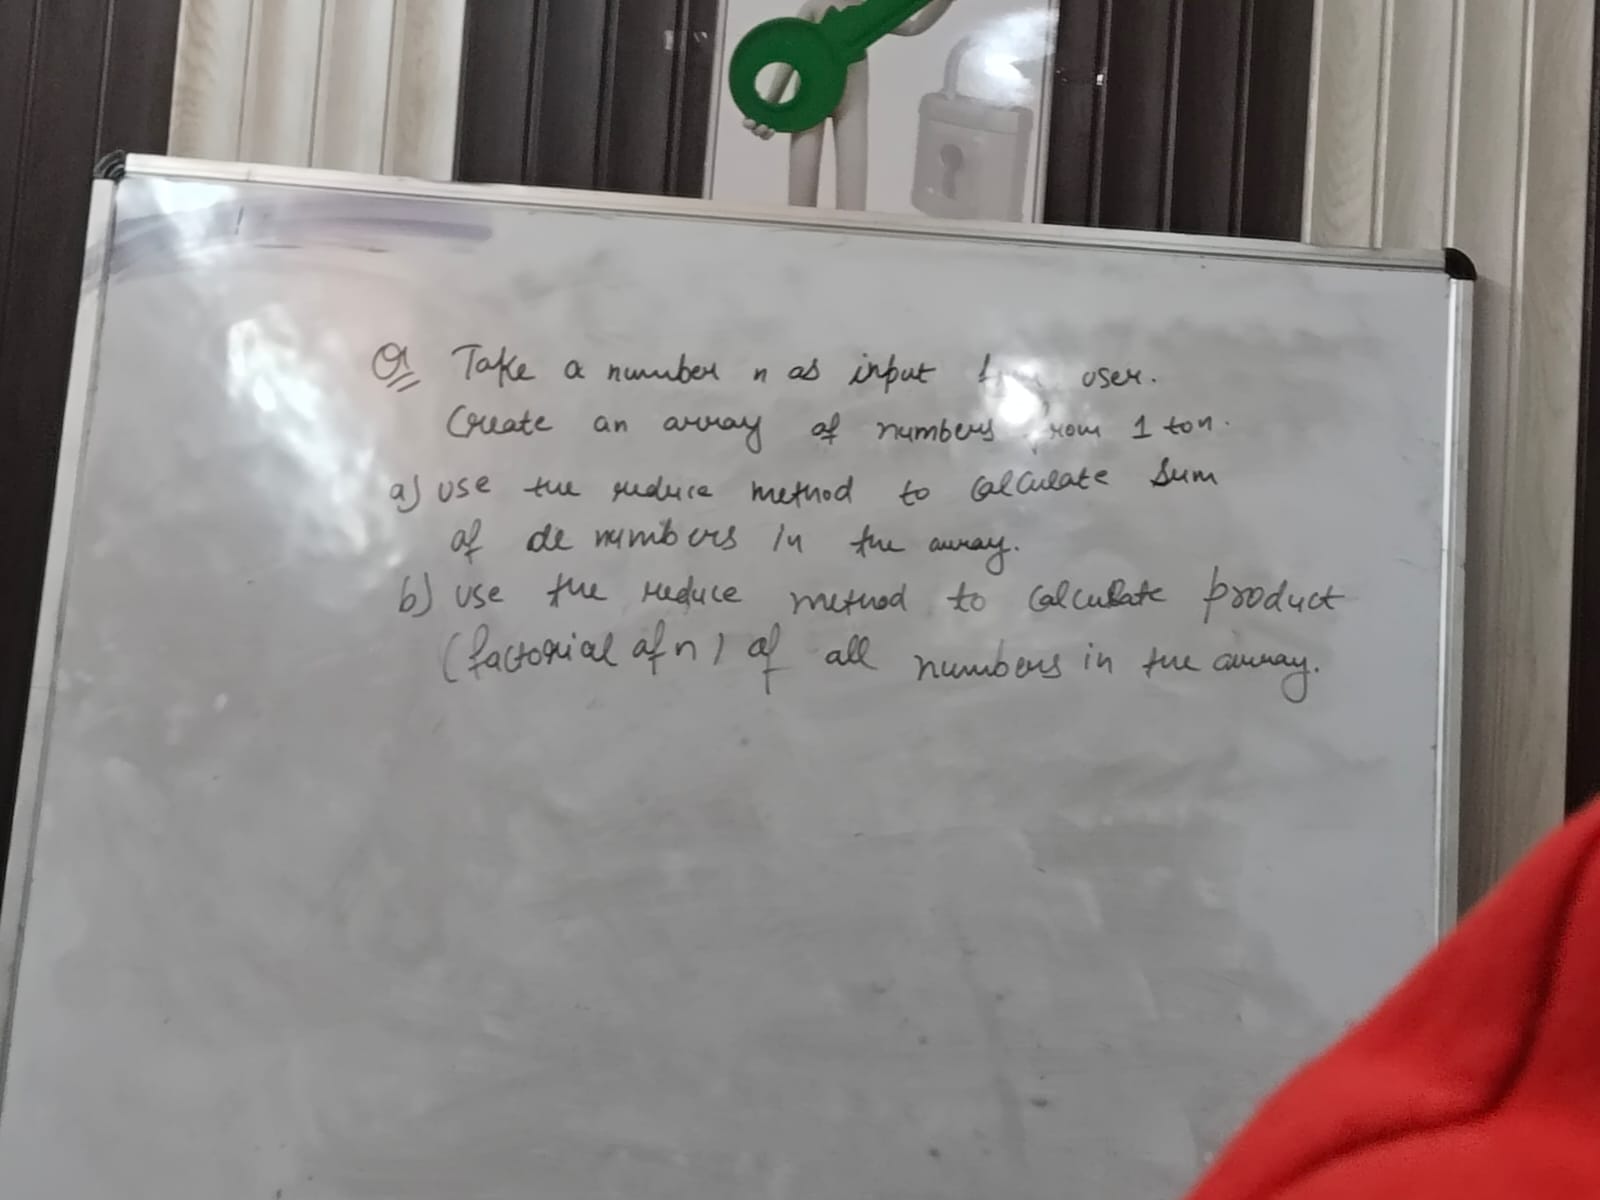 Q Take a number n as input user.
Create an array of numbers from 1 to n.
a) Use the reduce method to calculate sum
of de numbers in the array.
b) Use the reduce method to calculate product
(factorial of n) of all numbers in the array.